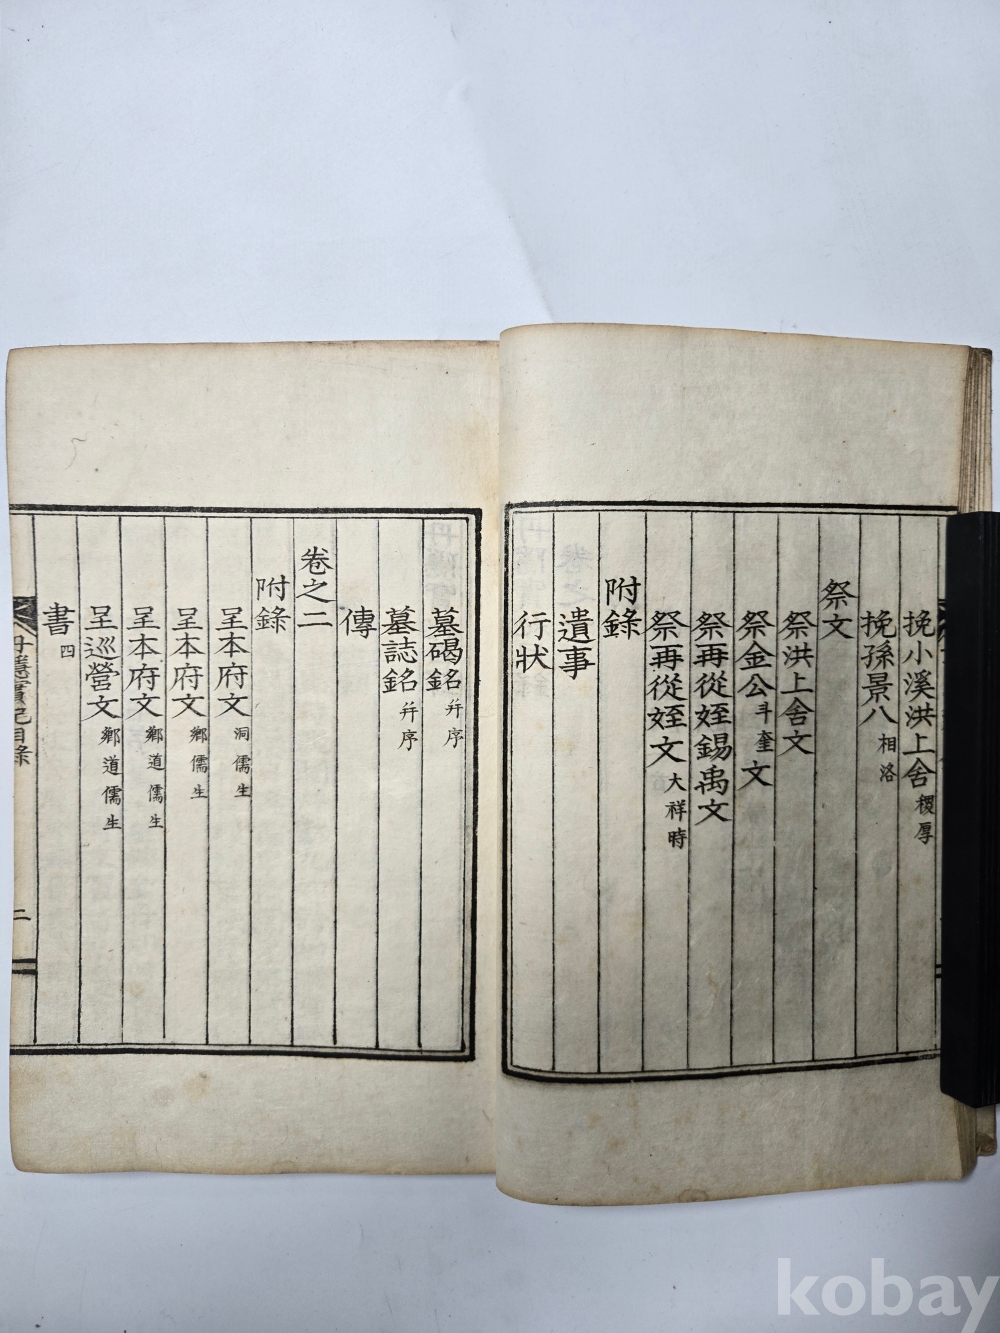 挽小溪洪上舍稷厚
挽孫景八相洛
祭文
祭洪上舍文
祭金公斗奎文
祭再從姪錫禹文
祭再從姪文大祥時
附錄
遺事
行狀
墓碣銘并序
墓誌銘并序
傳
卷之二
附錄
呈本府文洞儒生
呈本府文鄉儒生
呈本府文鄉道儒生
呈巡營文鄉道儒生
書四
丹隱實紀目錄
二
kobay